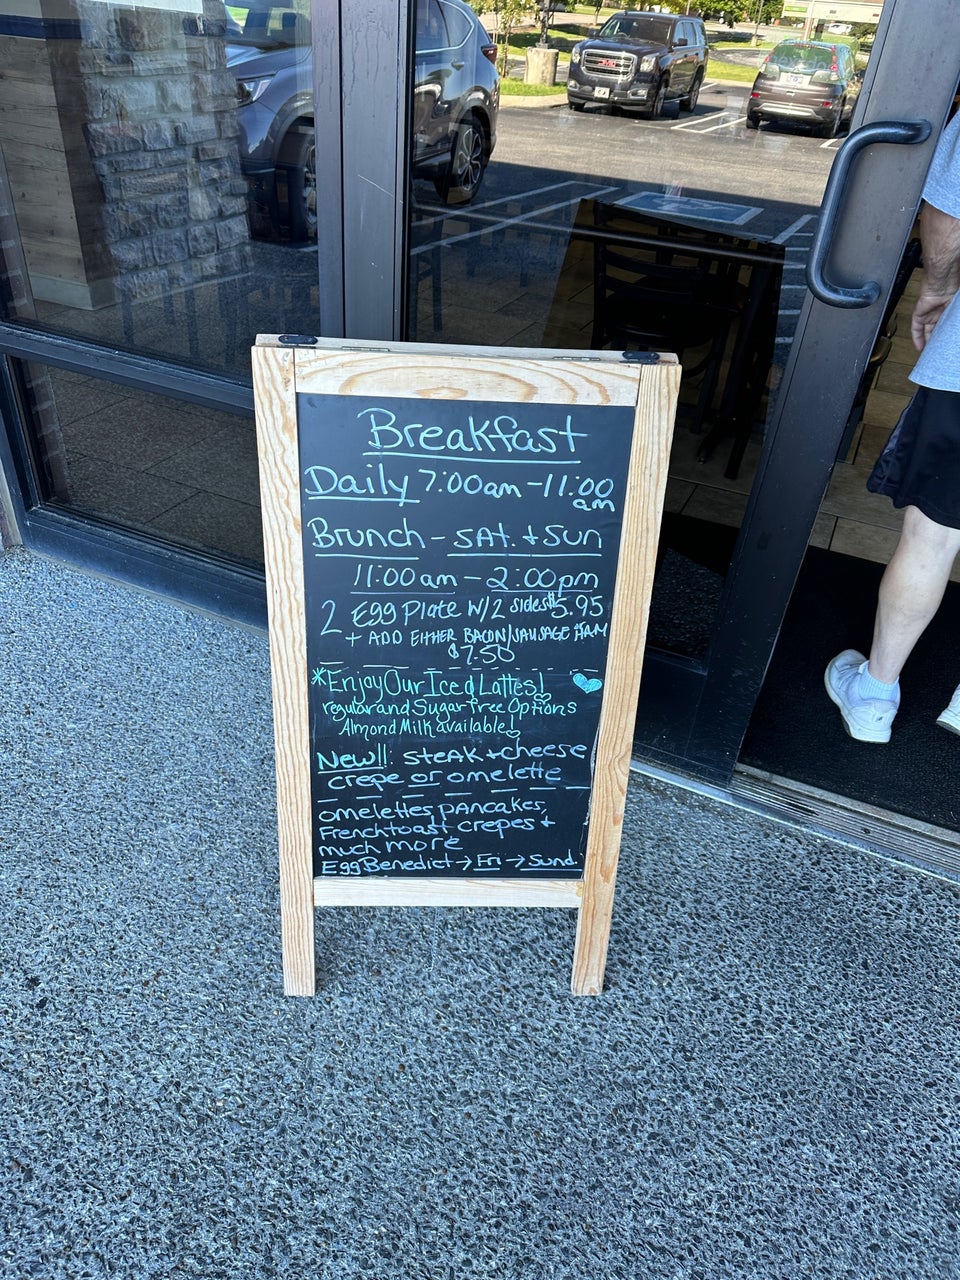 Breakfast
Daily 7:00am -11:00
am
Brunch - SAT. + Sun
11:00 am - 2:00pm
2 Egg Plate W/2 sides $5.95
+ ADD EITHER BACON/SAUSAGE HAM
$7.50
*Enjoy Our Iced Lattes!
regular and Sugar free Options
Almond Milk available!
New!!: Steak + cheese
crepe or omelette
omelettes, pancakes,
French toast crepes +
much more
Egg Benedict → Fri → Sund.